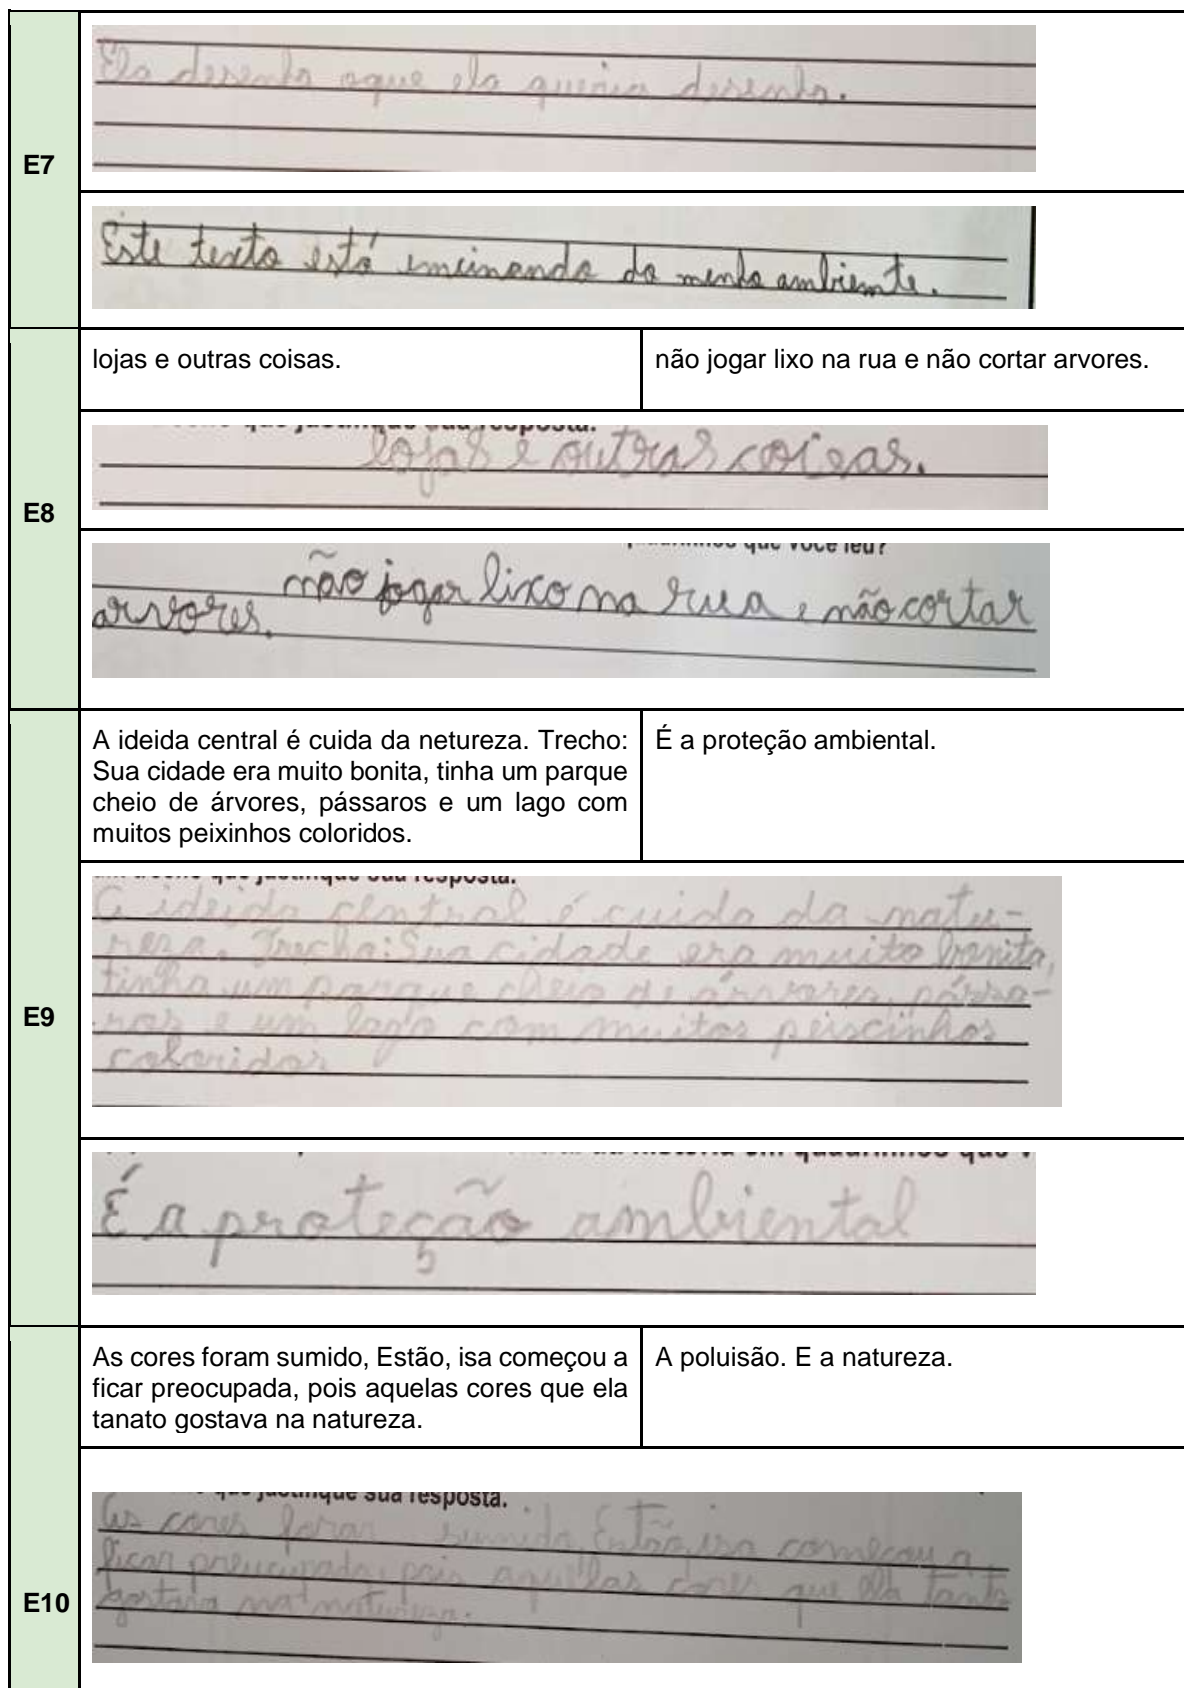 E7
Ela desenha oque ela queria desenha.
Este texto está encinando do menho ambiente.
E8
lojas e outras coisas.
não jogar lixo na rua e não cortar arvores.
que justifique sua resposta.
lojas e outras coisas.
quadrinhos que você leu?
não jogar lixo na rua e não cortar
arvores.
E9
A ideida central é cuida da netureza. Trecho:
Sua cidade era muito bonita, tinha um parque
cheio de árvores, pássaros e um lago com
muitos peixinhos coloridos.
É a proteção ambiental.
um trecho que justifique sua resposta.
A ideida central é cuida da natu-
reza. Trecho: Sua cidade era muito bonita,
tinha um parque cheio de árvores, pássa-
ros e um lago com muitos peiscinhos
coloridos
da história em quadrinhos que v
É a proteção ambiental
E10
As cores foram sumido, Estão, isa começou a
ficar preocupada, pois aquelas cores que ela
tanato gostava na natureza.
A poluisão. E a natureza.
que justifique sua resposta.
As cores foran sumido, Então, isa começou a
ficar preucupada, pois aquellas cores que ela tanto
gostava na natureza.